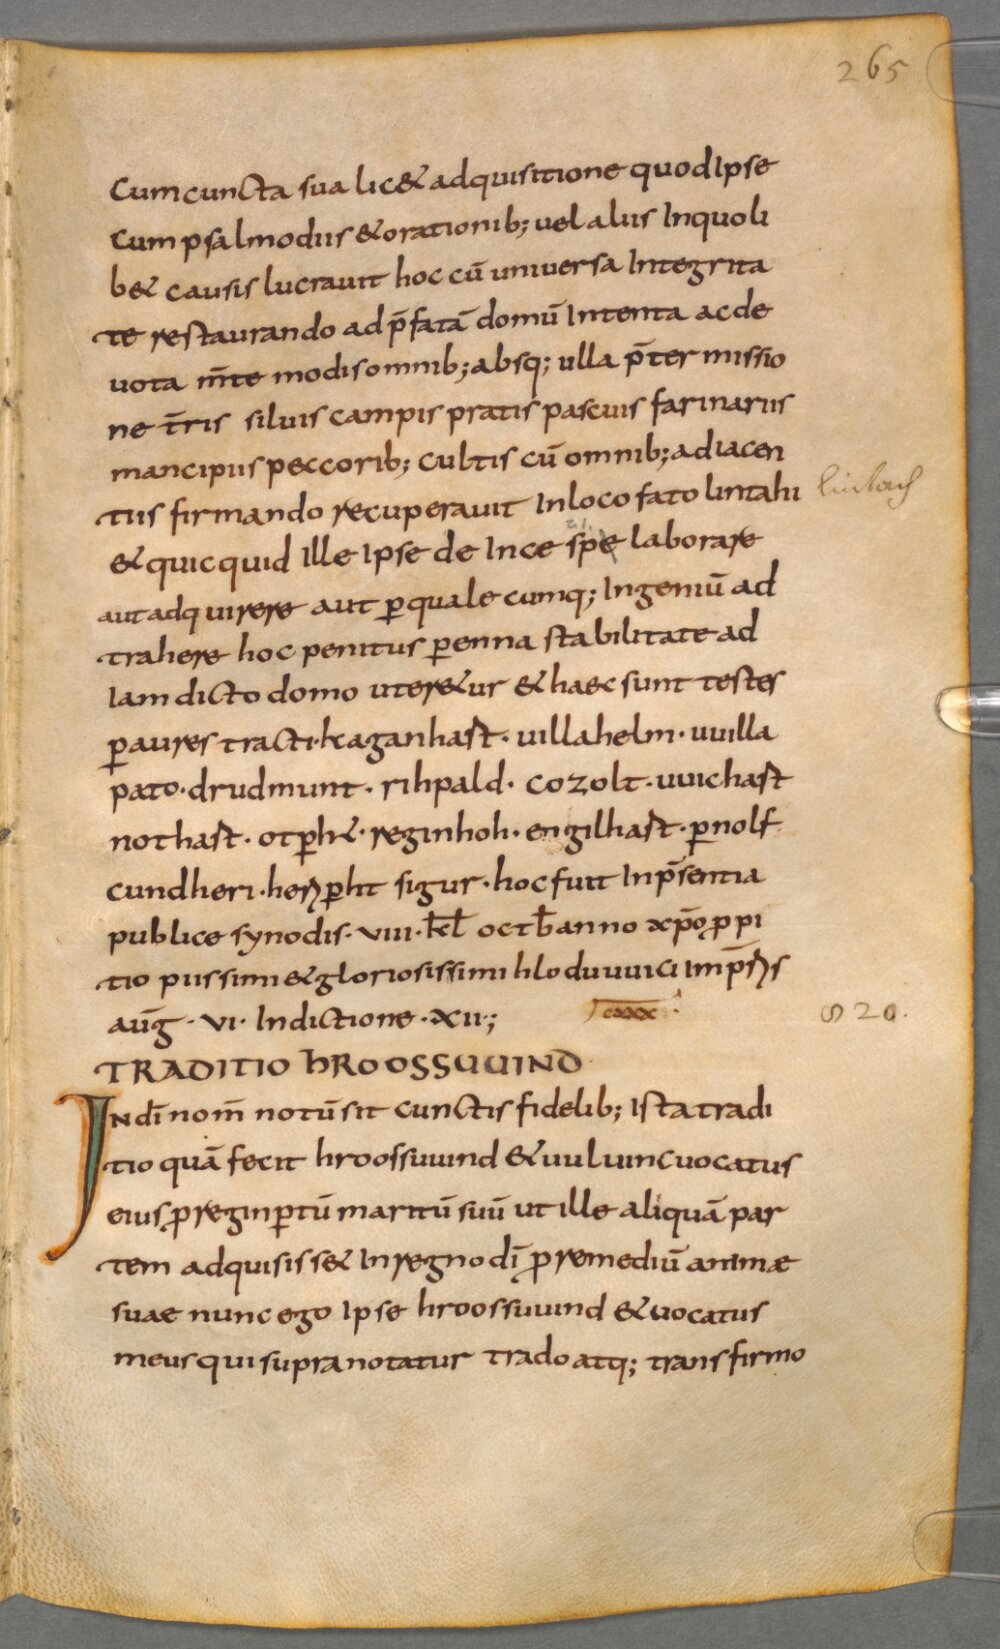 265
cum cuncta sua lic& adquisitione quod Ipse
cum psalmodiis & orationib; uel aliis Inquoli
b& causis lucrauit hoc cū uniuersa Integrita
te restaurando ad p̄fatā domū Intenta ac de
uota m̄te modis omnib; absq; ulla p̄termissio
ne t̄ris siluis campis pratis pascuis farinariis
mancipiis peccorib; cultis cū omnib; adiacen
tiis firmando recuperauit In loco fato lintahi
& quicquid Ille Ipse de Ince spe laborare
aut adquirere aut ꝑ quale cumq; Ingeniū ad
trahere hoc penitus ꝑenna stabilitate ad
Iam dicto domo uter&ur & haec sunt testes
ꝑ aures tracti· kaganhast· uillahelm· uuilla
pato· drudmunt· rihpald· cozolt· uuichast
nothast· otꝑht· reginhoh· engilhast· ꝑnolf
cundheri· herꝑht sigur· hoc fuit In p̄sentia
publice synodis· VIII· kł octb̄ anno xp̄o ꝓpi
tio piissimi & gloriosissimi hloduuuici Imp̄rs
auḡ· VI· Indictione· XII·;
cxxx·
S 20.
TRADITIO hROOSSUUIND
In dī nom̄ notū sit cunctis fidelib; Ista tradi
tio quā fecit hroossuuind & uuluin cuocatus
eius ꝓ reginꝑtū maritū suū ut ille aliquā par
tem adquisiss& In regno dī ꝓ remediū animæ
suae nunc ego Ipse hroossuuind & uocatus
meus qui supra notatur trado atq; transfirmo